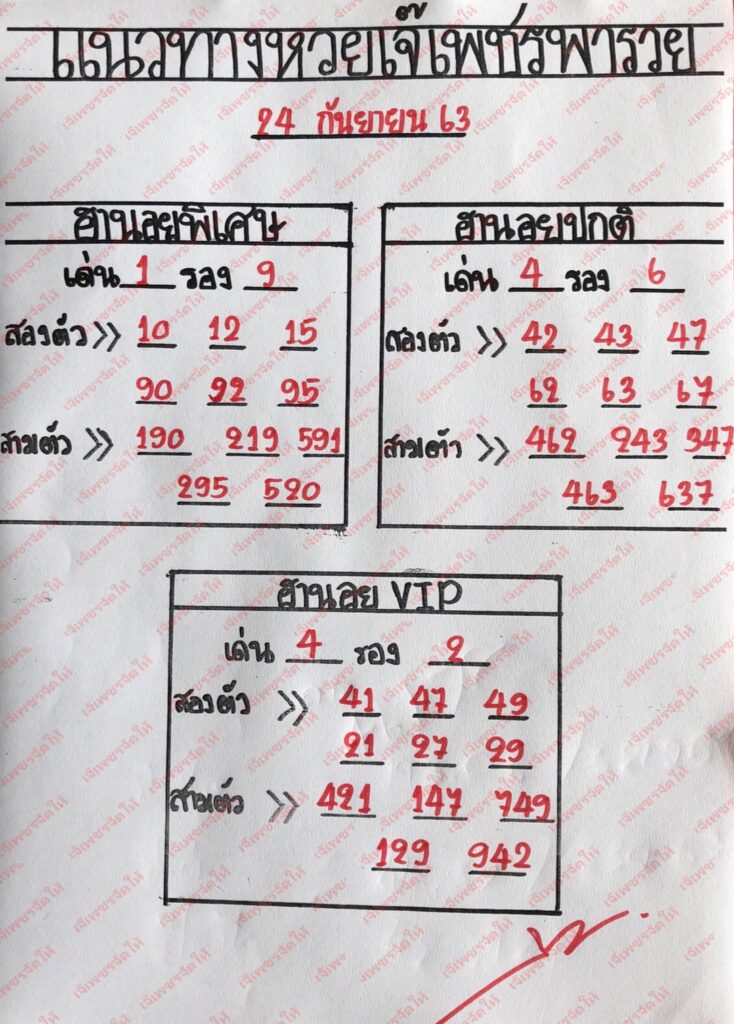 แนวทางหวยเจ๊เพชรพารวย
24 กันยายน 63
ฮานอยพิเศษ
เด่น 1 รอง 9
สองตัว >> 10 12 15
90 92 95
สามตัว >> 190 219 591
295 520
ฮานอยปกติ
เด่น 4 รอง 6
สองตัว >> 42 43 47
62 63 67
สามตัว >> 462 243 347
463 637
ฮานอย VIP
เด่น 4 รอง 2
สองตัว >> 41 47 49
21 27 29
สามตัว >> 421 147 749
129 942
เจ๊เพชรจัดให้